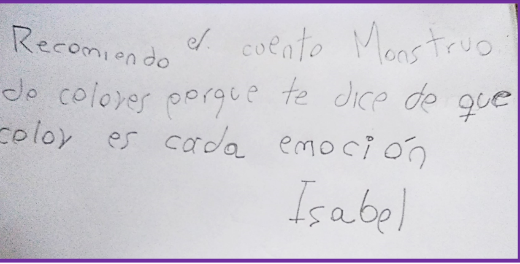 Recomiendo el cuento Monstruo
de colores porque te dice de que
color es cada emoción
Isabel